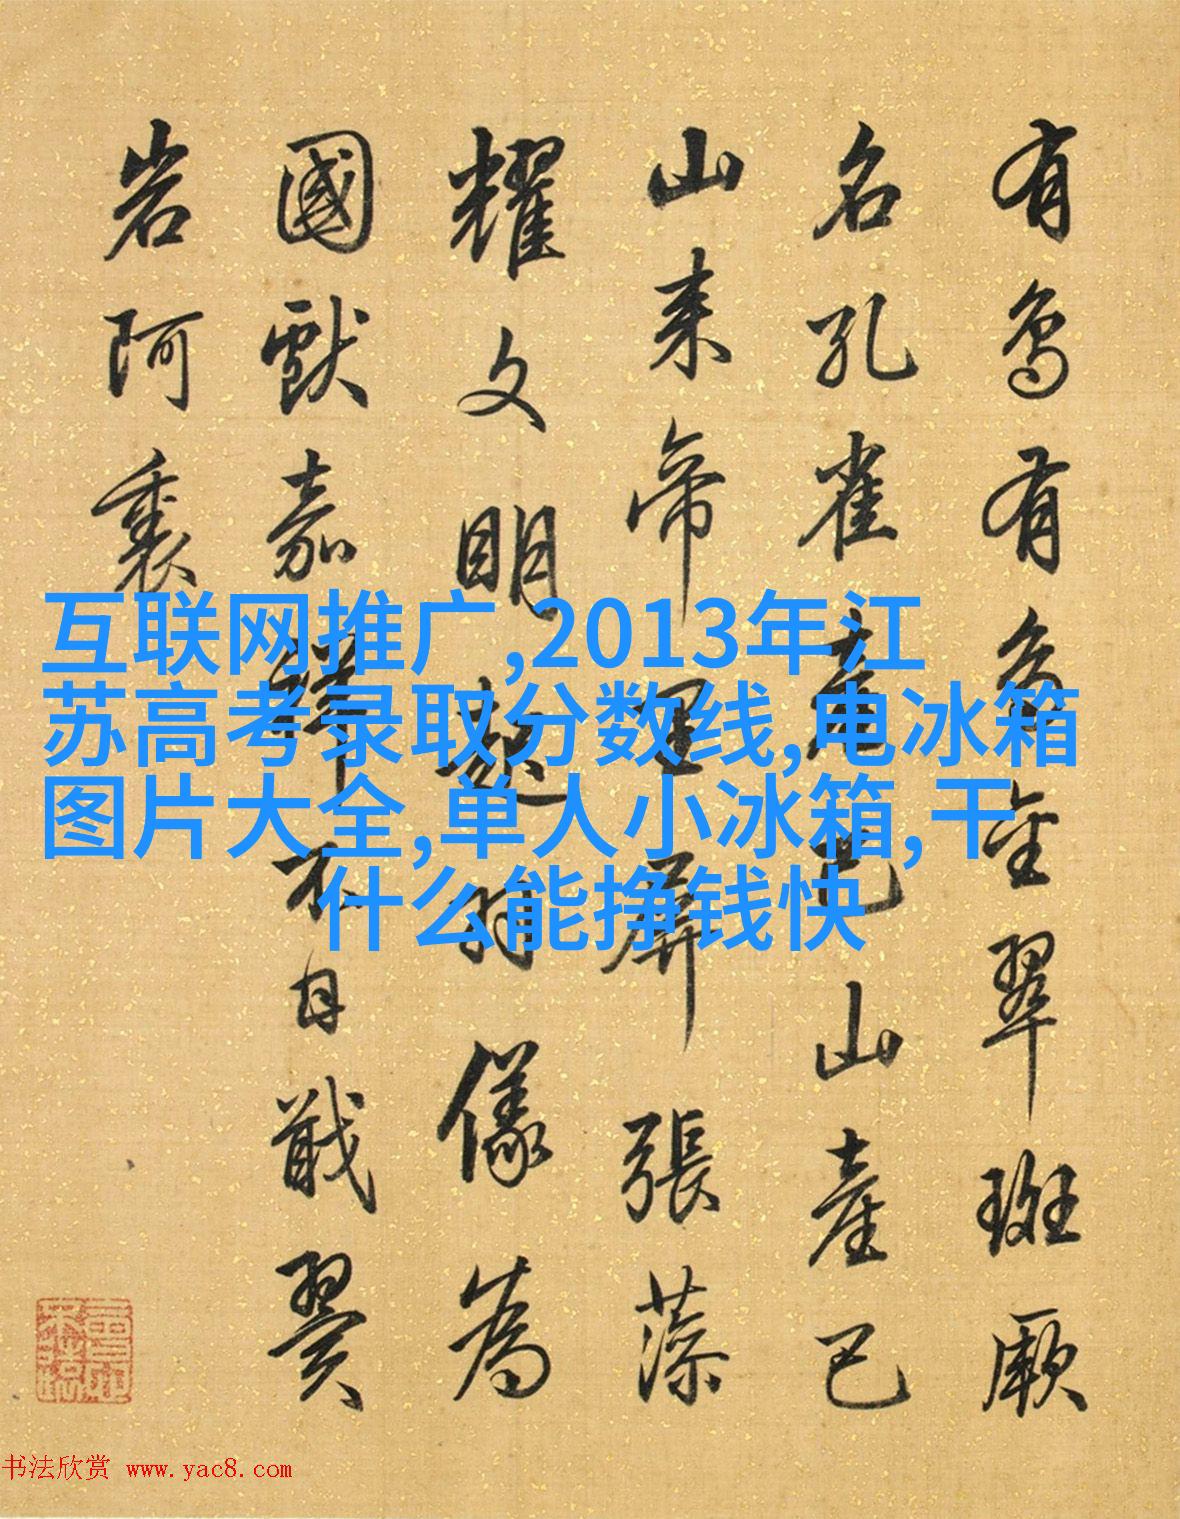 有鳥有鳥金翠斑厥
名孔雀產巴山產巴
山来帝里屏張藻
耀文明翹羽儀為
國獻嘉不戢翼
岩阿裏
互联网推广,2013年江
苏高考录取分数线,电冰箱
图片大全,单人小冰箱,干
什么能挣钱快
书法欣赏 www.yac8.com